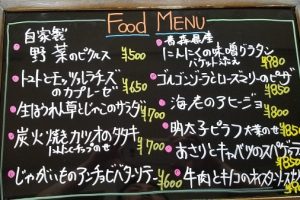 Food MENU
自家製
野菜のピクルス ¥500
トマトとモッツァレラチーズ
のカプレーゼ ¥650
生ほうれん草とじゃこのサラダ ¥700
炭火焼きカツオのタタキ ¥700
じゃがいものアンチョビバターソテー ¥600
青森県産
にんにくの味噌グラタン
バゲット添え ¥980
ゴルゴンゾーラとローズマリーのピザ
海老のアヒージョ
明太子ピラフ 大葉のせ ¥850
あさりとキャベツのスパゲッティ
牛肉とキノコのオイスターソース